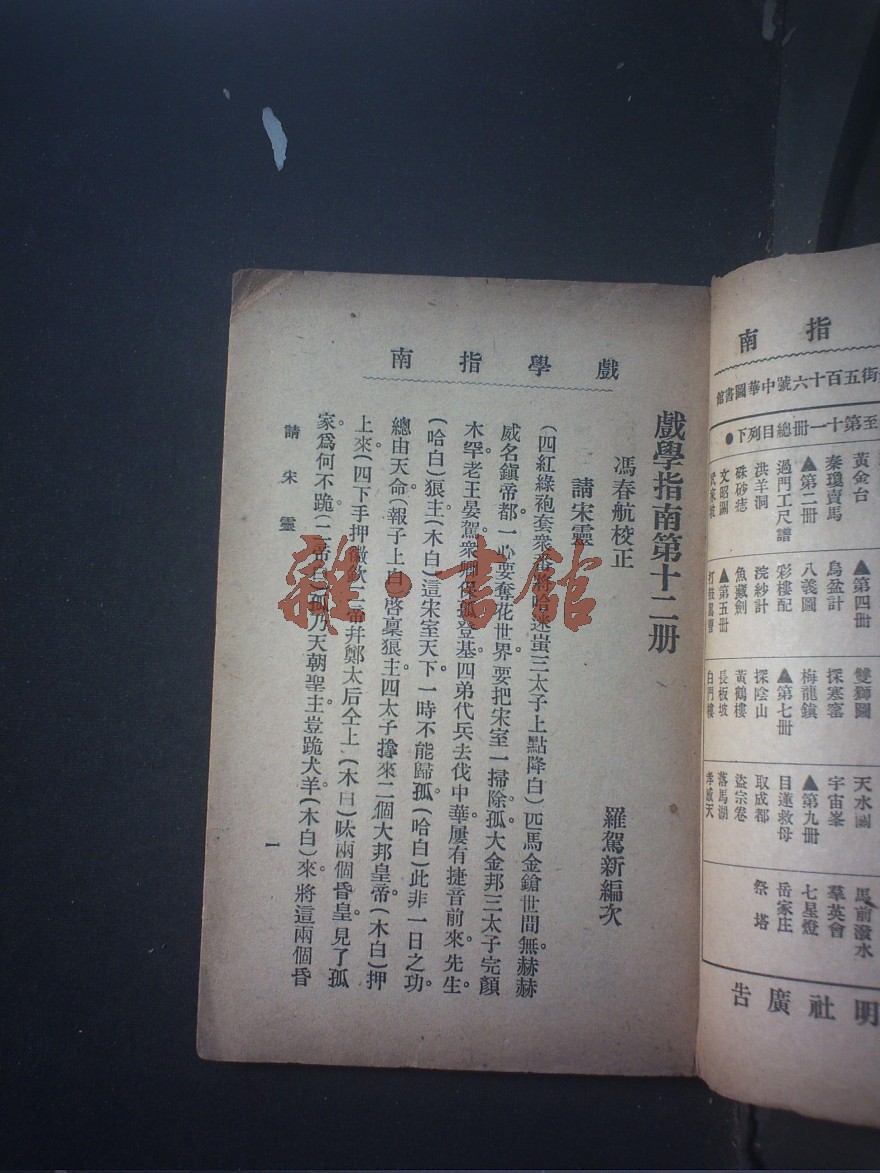 指南
街五百十六號中華圖書館
至第十一冊總目列下●
黃金台
秦瓊賣馬
▲第二冊
過門工尺譜
洪羊洞
硃砂痣
文昭關
▲第四冊
烏盆計
八義圖
彩樓配
浣紗計
魚藏劍
▲第五冊
雙獅圖
探寒窰
梅龍鎮
▲第七冊
探陰山
黃鶴樓
長板坡
白門樓
天水關
宇宙峯
▲第九冊
目蓮救母
取成都
盜宗卷
落馬湖
孝感天
馬前潑水
羣英會
七星燈
岳家庄
祭塔
明社廣告
戲學指南
戲學指南第十二册
馮春航校正
羅駕新編次
請宋靈
(四紅綠袍套衆番將哈迷蚩三太子上點降白)匹馬金鎗世間無赫赫
威名鎭帝都一心要奪花世界要把宋室一掃除。孤大金邦三太子完顏
木罕老王晏駕衆卿保孤登基四弟代兵去伐中華屢有捷音前來。先生
(哈白)狼主(木白)這宋室天下一時不能歸孤(哈白)此非一日之功。
總由天命(報子上白)啓稟狼主四太子擒來二個大邦皇帝(木白)押
上來(四下手押徽欽二帝幷鄭太后仝上)(木白)呔兩個昏皇。見了孤
家。爲何不跪(二帝白)孤乃天朝聖主。豈跪犬羊(木白)來。將這兩個昏
請宋靈
一
雜·書館